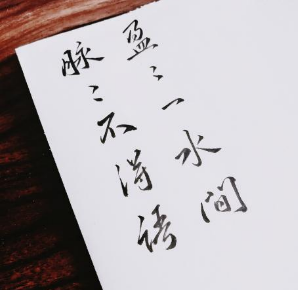 盈〻一水间
脉〻不得语